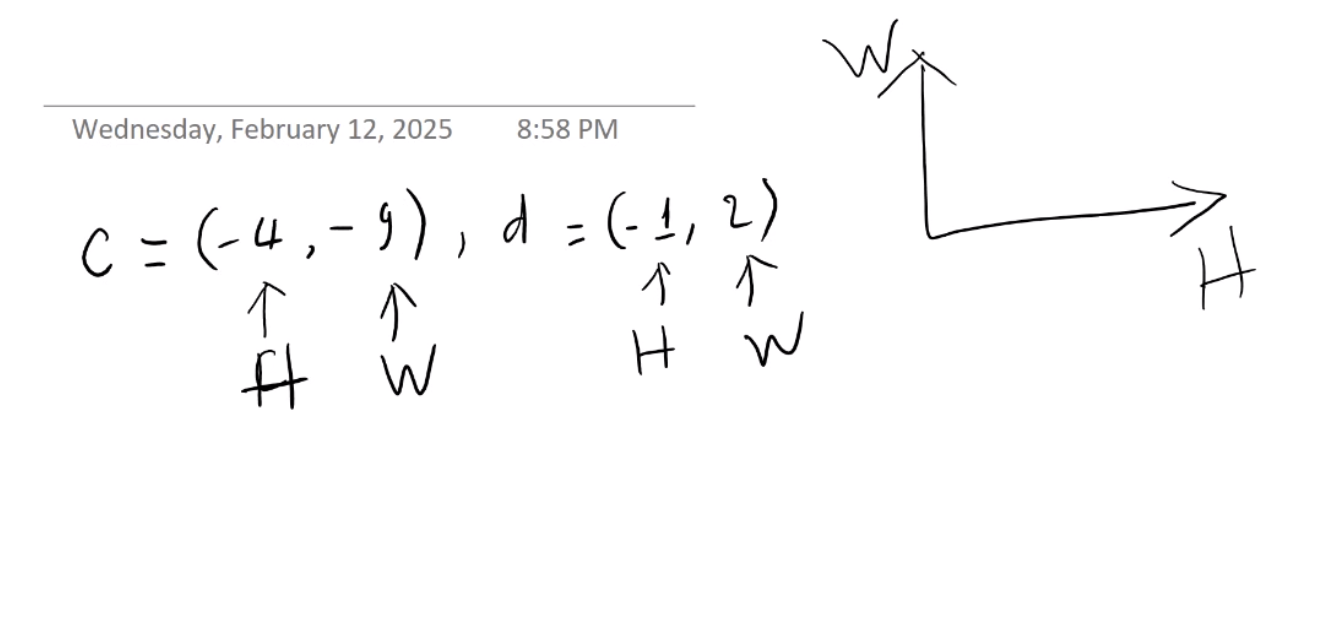 W
Wednesday, February 12, 2025 8:58 PM
C = (-4, -9), d = (-1, 2)
H
↑ ↑ ↑ ↑
H W H W